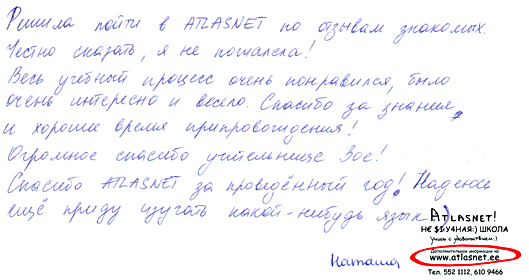 Решила пойти в ATLASNET по отзывам знакомых.
Честно сказать, я не пожалела!
Весь учебный процесс очень понравился, было
очень интересно и весело. Спасибо за знания,
и хорошее время припровождения!
Огромное спасибо учительнице Зое!
Спасибо ATLASNET за проведённый год! Надеюсь
ещё приду изучать какой-нибудь язык
Наташа
ATLASNET!
НЕ $1У4НАЯ:) ШКОЛА
Учись с удовольствием :)
Дополнительная информация на
www.atlasnet.ee
Тел. 552 1112, 610 9466